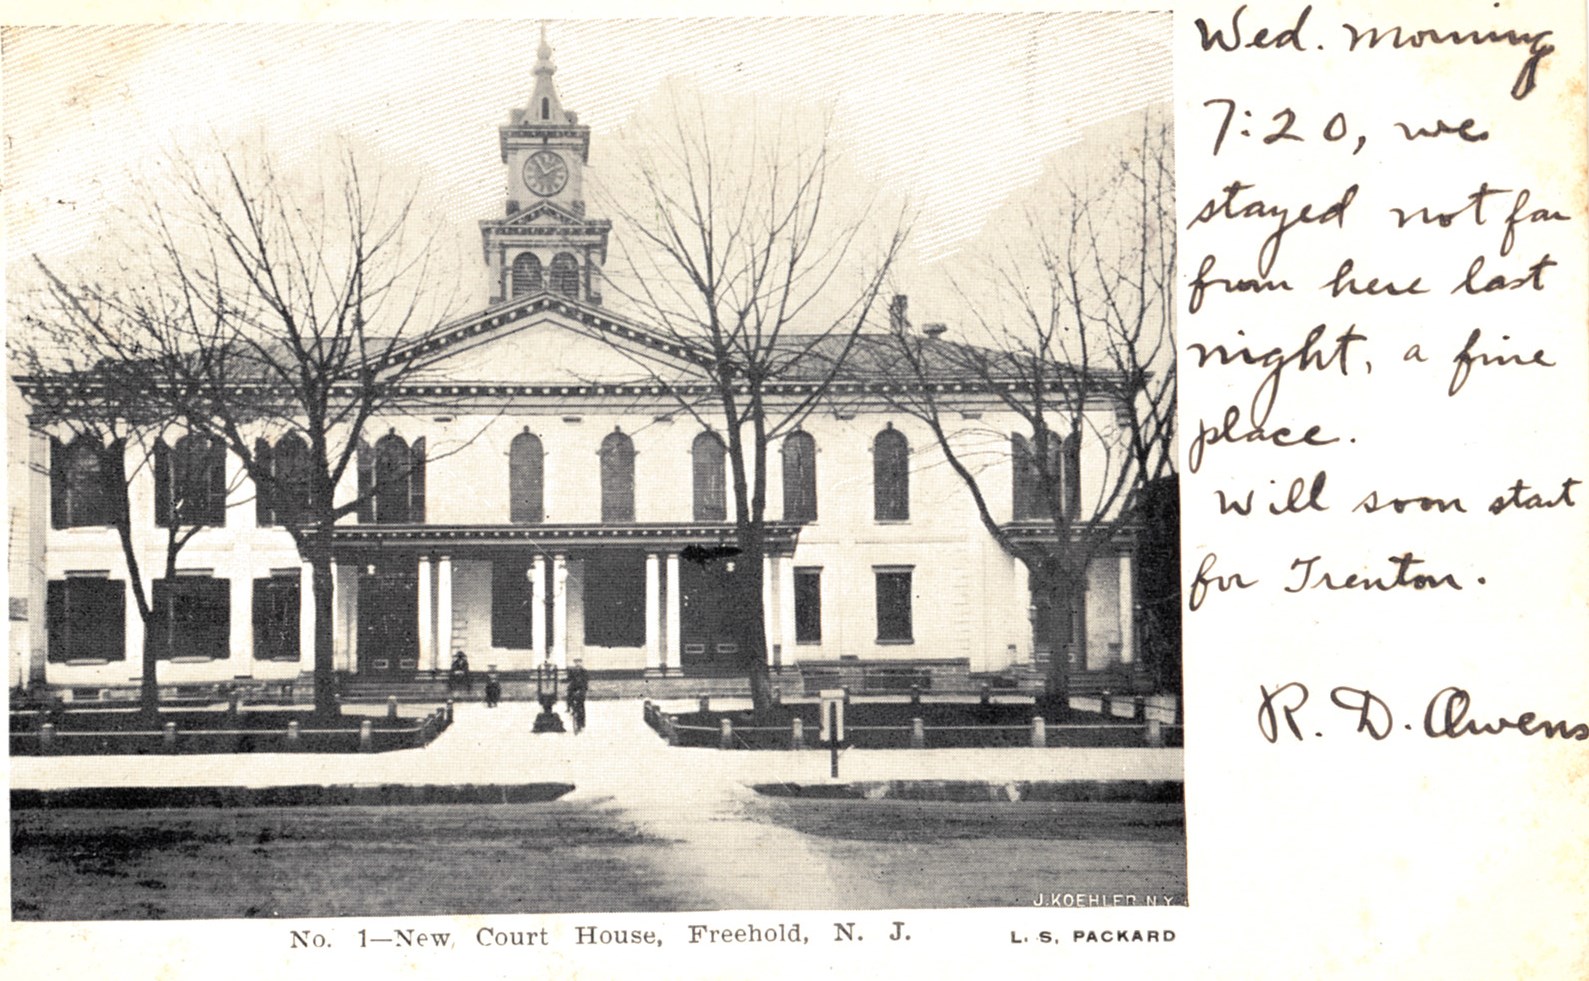 Wed. morning
7:20, we
stayed not far
from here last
night, a fine
place.
Will soon start
for Trenton.
R. D. Owens
J. KOEHLER N.Y.
No. 1—New Court House, Freehold, N. J.
L. S. PACKARD